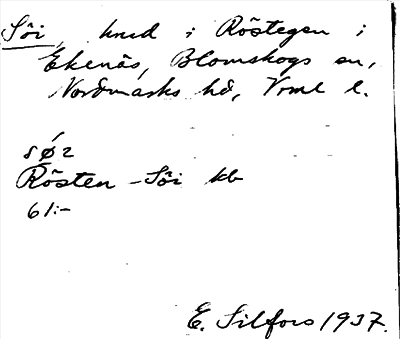 Söi, hmd i Röstegen i
Ekenäs, Blomskogs sn,
Nordmarks hd, Vrml l.
sǿ2
Rösten - Söi kb
61:-
E. Silfors 1937.